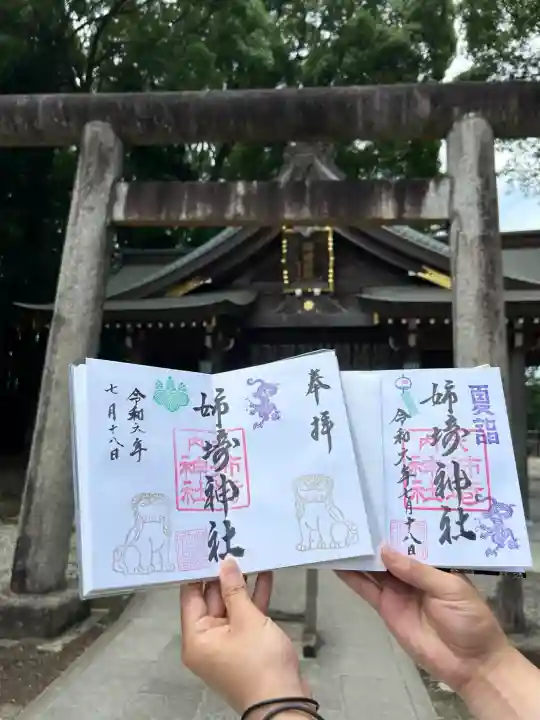 奉拝
姉埼神社
令和六年
七月十八日
夏詣
姉埼神社
令和六年七月十八日